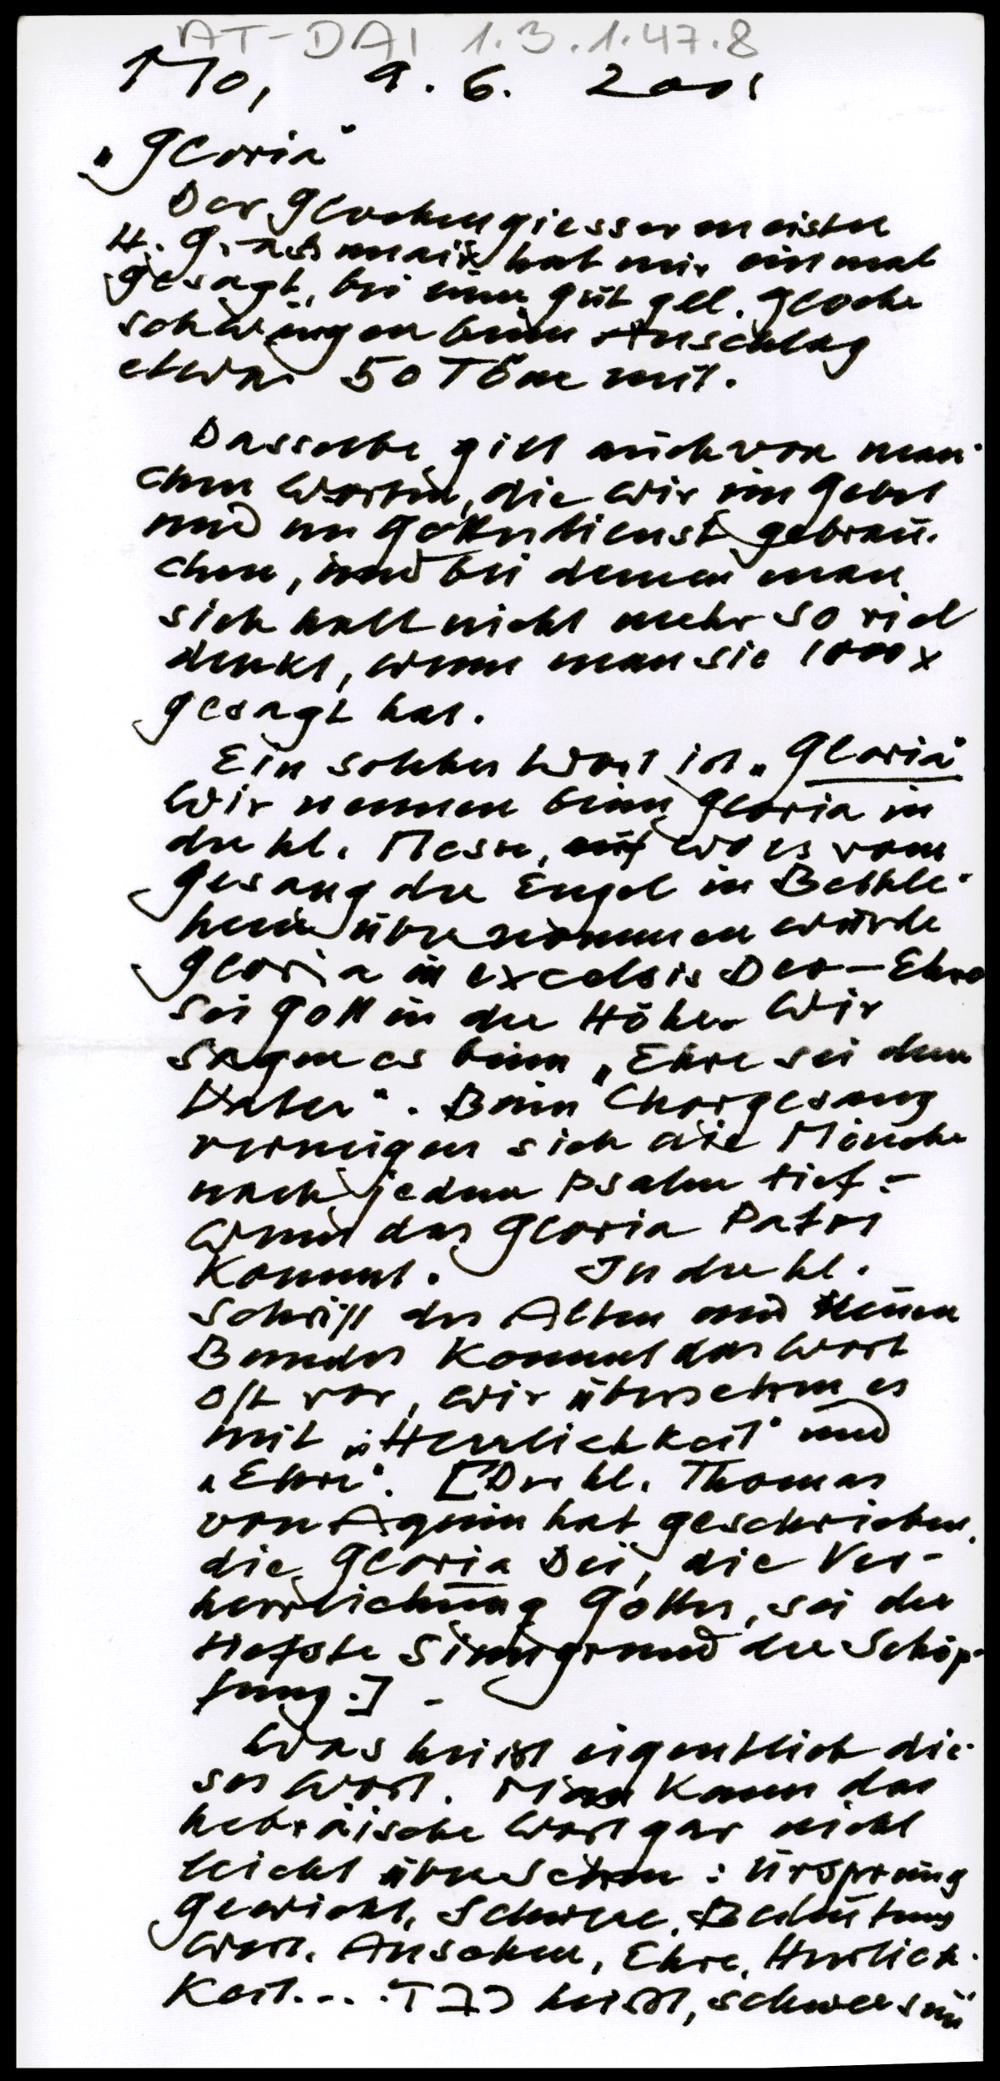 AT-DAI 1.3.1.47.8
Mo, 9. 6. 2001
„Gloria"
Der Glockengiessermeister
H. Grassmair hat mir einmal
gesagt, bei einer gut gell. Glocke
schwingen beim Anschlag
etwa 50 Töne mit.
Dasselbe gilt auch von man-
chen Worten, die wir im Gebet
und im Gottesdienst gebrau-
chen, und bei denen man
sich halt nicht mehr so viel
denkt, wenn man sie 1000 x
gesagt hat.
Ein solches Wort ist „Gloria"
Wir nennen beim Gloria in
der hl. Messe, wo es vom
Gesang der Engel in Bethle-
hem übernommen wurde
Gloria in excelsis Deo – Ehre
sei Gott in der Höhe. Wir
sagen es beim „Ehre sei dem
Vater". Beim Chorgesang
verneigen sich die Mönche
nach jedem Psalm tief –
wenn das Gloria Patri
kommt. In der hl.
Schrift des Alten und Neuen
Bundes kommt das Wort
oft vor, wir übersetzen es
mit „Herrlichkeit" und
„Ehre". [Der hl. Thomas
von Aquin hat geschrieben,
die Gloria Dei, die Ver-
herrlichung Gottes, sei der
tiefste Sinngrund der Schöp-
fung.] –
Was heisst eigentlich die-
ses Wort. Man kann das
hebräische Wort gar nicht
leicht übersetzen: Ursprung
Gewicht, Schwere, Bedeutung
Wert, Ansehen, Ehre, Herrlich-
keit... heisst, schwer sein